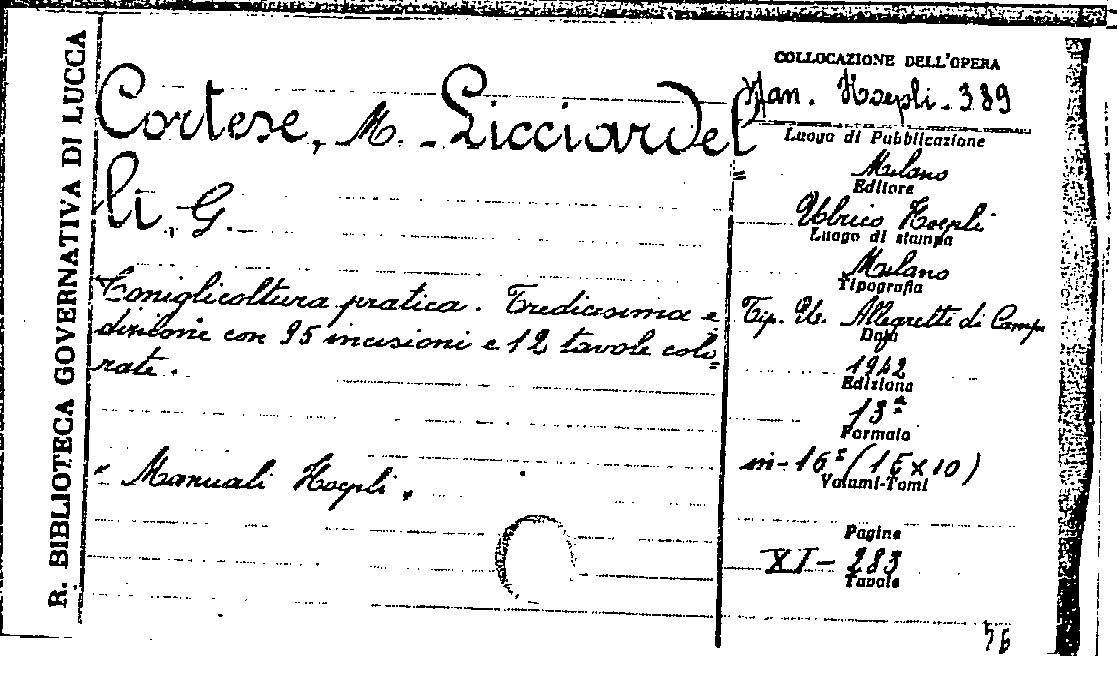 R. BIBLIOTECA GOVERNATIVA DI LUCCA
Cortese, M. - Licciardel=
li, G.
Coniglicoltura pratica. Tredicesima e=
dizione con 95 incisioni e 12 tavole colo=
rate.
" Manuali Hoepli "
COLLOCAZIONE DELL'OPERA
Man. Hoepli - 389
Luogo di Pubblicazione
Milano
Editore
Ulrico Hoepli
Luogo di stampa
Milano
Tipografia
Tip. U. Allegretti di Campi
Data
1942
Edizione
13ª
Formato
in-16° (15x10)
Volumi-Tomi
Pagine
XI - 283
Tavole
76